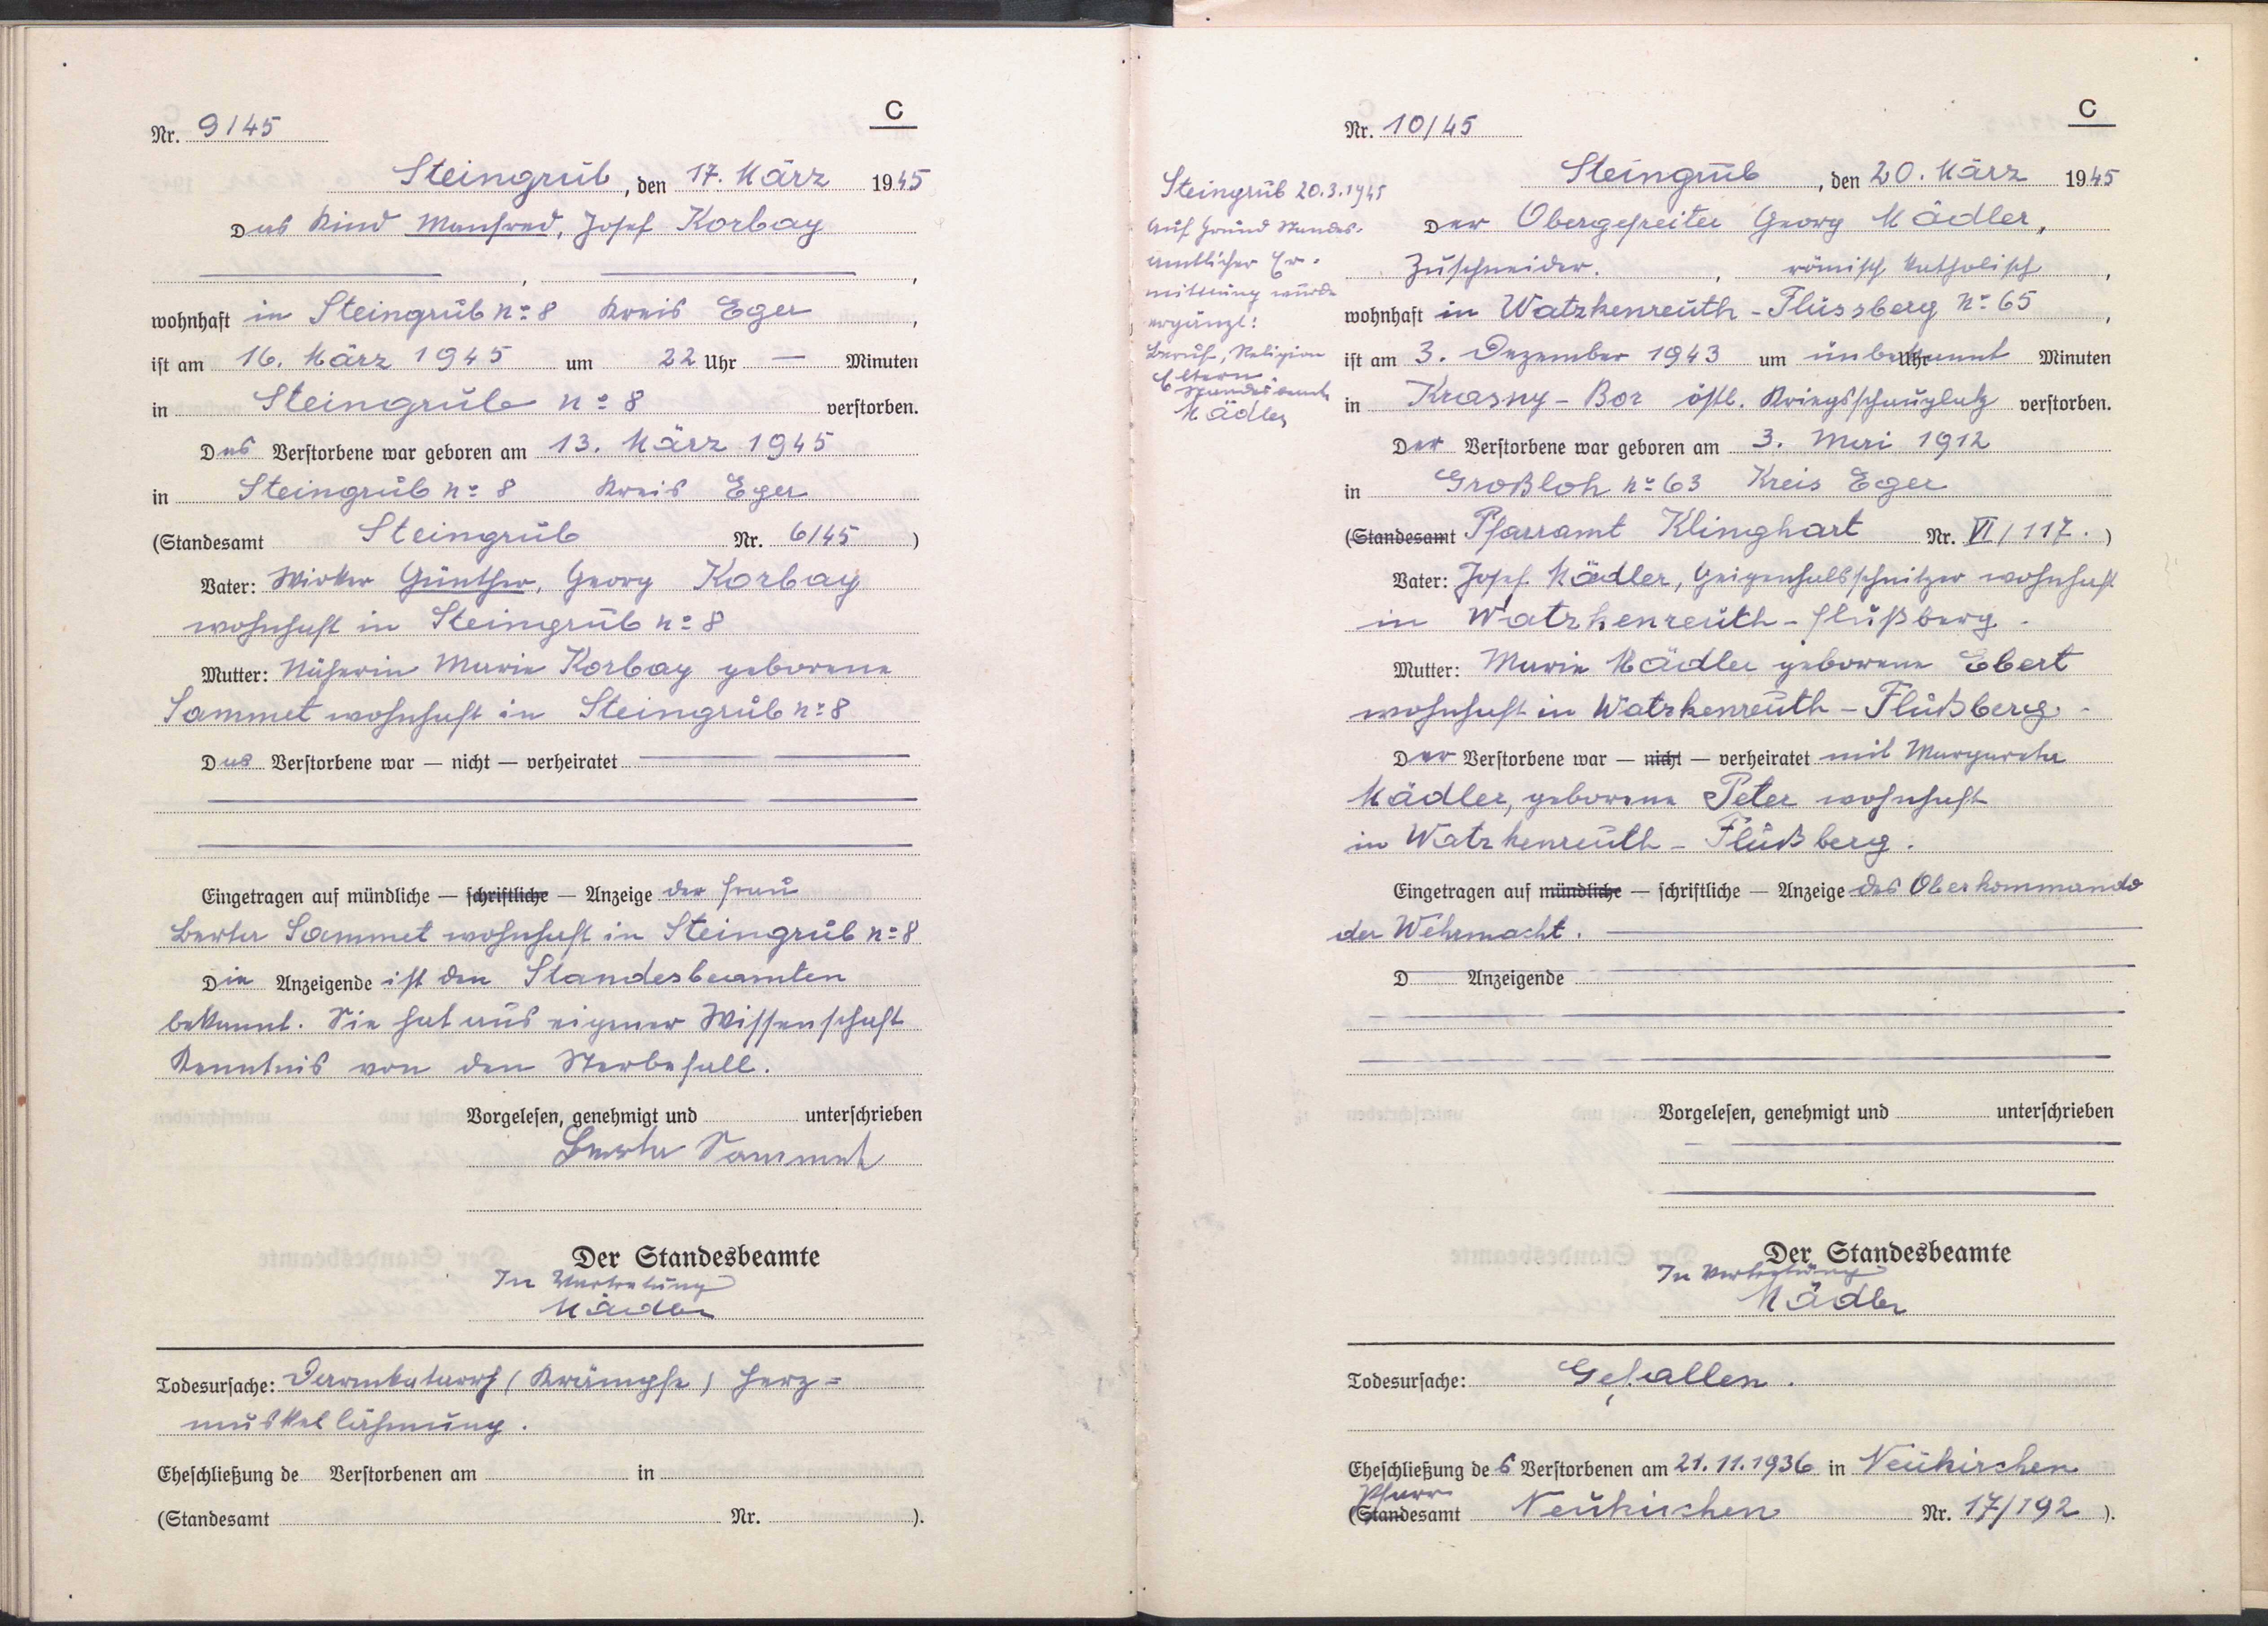 C
Nr. 9/45
Steingrub, den 17. März 1945
Das Kind Manfred, Josef Korbay
wohnhaft in Steingrub No 8 Kreis Eger,
ist am 16. März 1945 um 22 Uhr — Minuten
in Steingrub No 8 verstorben.
Das Verstorbene war geboren am 13. März 1945
in Steingrub No 8 Kreis Eger
(Standesamt Steingrub Nr. 6/45)
Vater: Wirker Günther, Georg Korbay
wohnhaft in Steingrub No 8
Mutter: Näherin Marie Korbay geborene
Sammet wohnhaft in Steingrub No 8
Das Verstorbene war — nicht — verheiratet
Eingetragen auf mündliche — schriftliche — Anzeige der Frau
Berta Sammet wohnhaft in Steingrub No 8
Die Anzeigende ist den Standesbeamten
bekannt. Sie hat aus eigener Wissenschaft
Kenntnis von den Sterbefall.
Vorgelesen, genehmigt und unterschrieben
Berta Sammet
Der Standesbeamte
In Vertretung
Mädler
Todesursache: Darmkatarrh (Krämpfe) Herz=
muskellähmung.
Eheschließung de Verstorbenen am in
(Standesamt Nr. ).
C
Nr. 10/45
Steingrub, den 20. März 1945
Der Obergefreiter Georg Mädler,
Zuschneider, römisch katholisch,
wohnhaft in Watzkenreuth-Flussberg No 65,
ist am 3. Dezember 1943 um unbekannt Uhr Minuten
in Krasny-Bor östl. Kriegsschauplatz verstorben.
Der Verstorbene war geboren am 3. Mai 1912
in Großloh No 63 Kreis Eger
(Standesamt Pfarramt Klinghart Nr. VI/117.)
Vater: Josef Mädler, Geigenhalsschnitzer wohnhaft
in Watzkenreuth-Flußberg.
Mutter: Marie Mädler geborene Ebert
wohnhaft in Watzkenreuth-Flußberg.
Der Verstorbene war — nicht — verheiratet mit Margareta
Mädler, geborene Peter wohnhaft
in Watzkenreuth-Flußberg.
Eingetragen auf mündliche — schriftliche — Anzeige des Oberkommando
der Wehrmacht.
D Anzeigende
Vorgelesen, genehmigt und unterschrieben
Der Standesbeamte
In Vertretung
Mädler
Todesursache: Gefallen.
Eheschließung des Verstorbenen am 21.11.1936 in Neukirchen
Pfarr
(Standesamt Neukirchen Nr. 17/192).
Steingrub 20.3.1945
Auf Grund Standes-
amtlicher Er-
mittlung wurde
ergänzt:
Beruf, Religion
Eltern.
Standesbeamte
Mädler